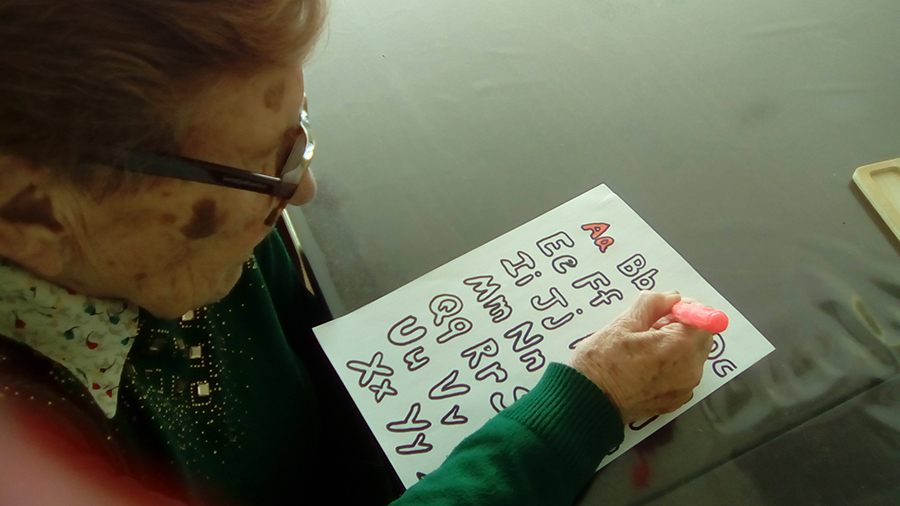 Aa Bb
Ee Ff
Ii Jj
Mm Nn
Qq Rr
Uu Vv
Xx Yy